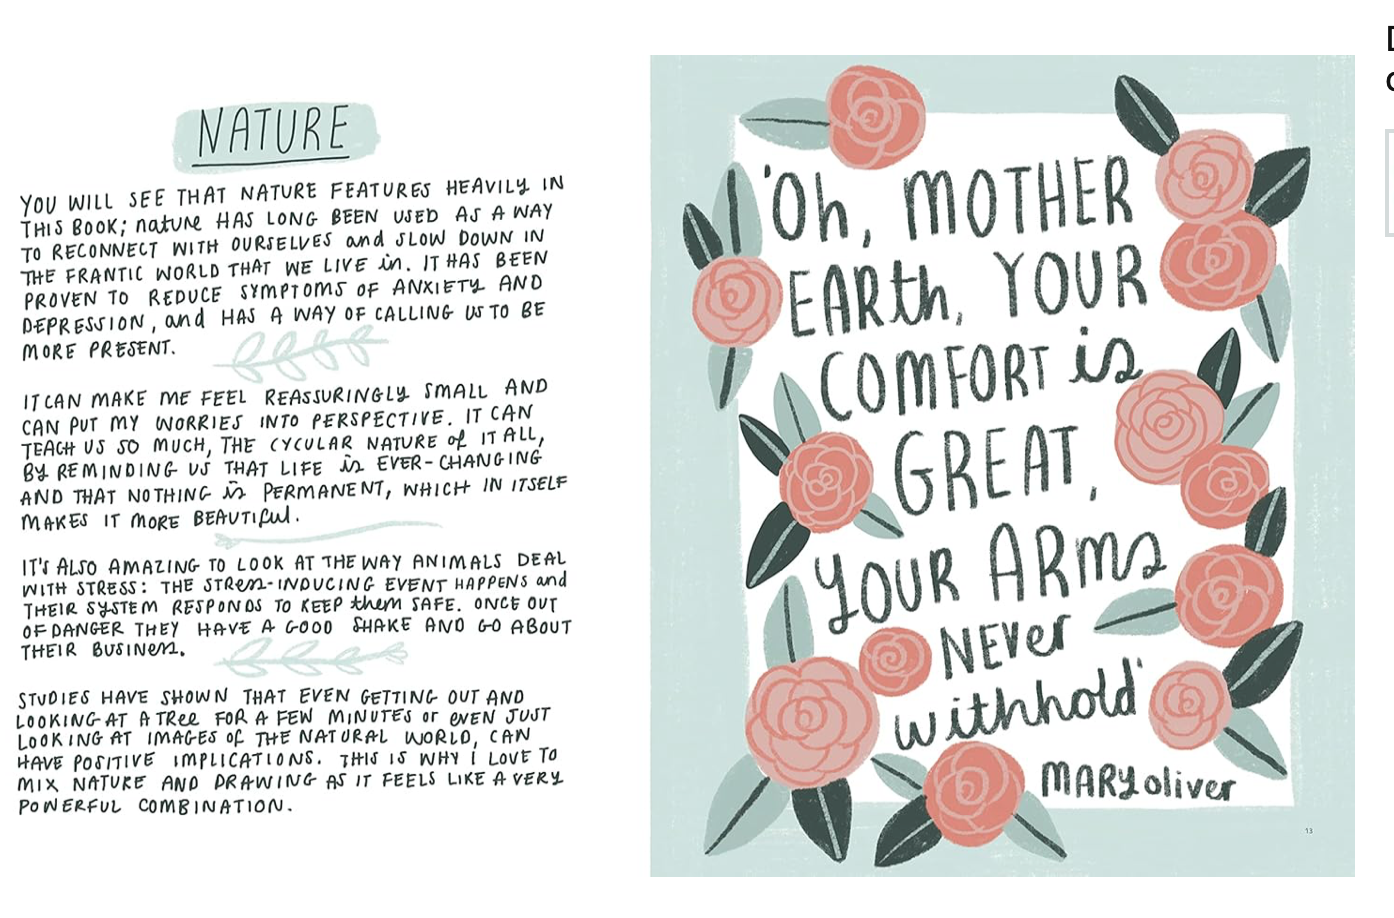 NATURE
YOU WILL SEE THAT NATURE FEATURES HEAVILY IN
THIS BOOK; nature HAS LONG BEEN USED AS A WAY
TO RECONNECT WITH OURSELVES and SLOW DOWN IN
THE FRANTIC WORLD THAT WE LIVE in. IT HAS BEEN
PROVEN TO REDUCE SYMPTOMS OF ANXIETY AND
DEPRESSION, and HAS A WAY OF CALLING US TO BE
MORE PRESENT.
IT CAN MAKE ME FEEL REASSURINGLY SMALL AND
CAN PUT MY WORRIES INTO PERSPECTIVE. IT CAN
TEACH US SO MUCH, THE CYCULAR NATURE of IT ALL,
BY REMINDING US THAT LIFE is EVER-CHANGING
AND THAT NOTHING is PERMANENT, WHICH IN ITSELF
MAKES IT MORE BEAUTIful.
IT'S ALSO AMAZING TO LOOK AT THE WAY ANIMALS DEAL
WITH STRESS: THE STRess-INDUCING EVENT HAPPENS and
THEIR SYSTEM RESPONDS TO KEEP them SAFE. ONCE OUT
OF DANGER THEY HAVE A GOOD SHAKE AND GO ABOUT
THEIR BUSINess.
STUDIES HAVE SHOWN THAT EVEN GETTING OUT AND
LOOKING AT A TRee FOR A FEW MINUTES or eVEN JUST
LOOKING AT IMAGES Of THE NATURAL WORLD, CAN
HAVE POSITIVE IMPLICATIONS. THIS IS WHY I LOVE TO
MIX NATURE AND DRAWING AS IT FEELS LIKE A VERY
POWERFUL COMBINATION.
'Oh, MOTHER
EARth, YOUR
COMFORT is
GREAT,
YOUR ARms
NEVer
withhold'
MARY oliver
13